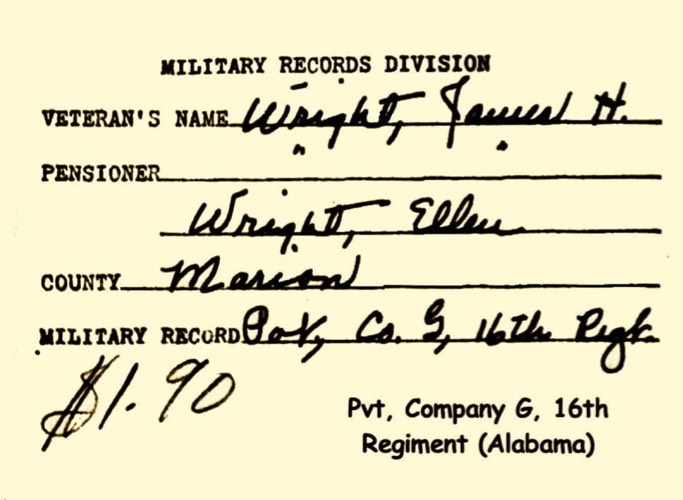 MILITARY RECORDS DIVISION
VETERAN'S NAME Wright, James H.
PENSIONER " "
Wright, Ellen
COUNTY Marion
MILITARY RECORD Pvt, Co. G, 16th Regt.
$1.90
Pvt, Company G, 16th
Regiment (Alabama)